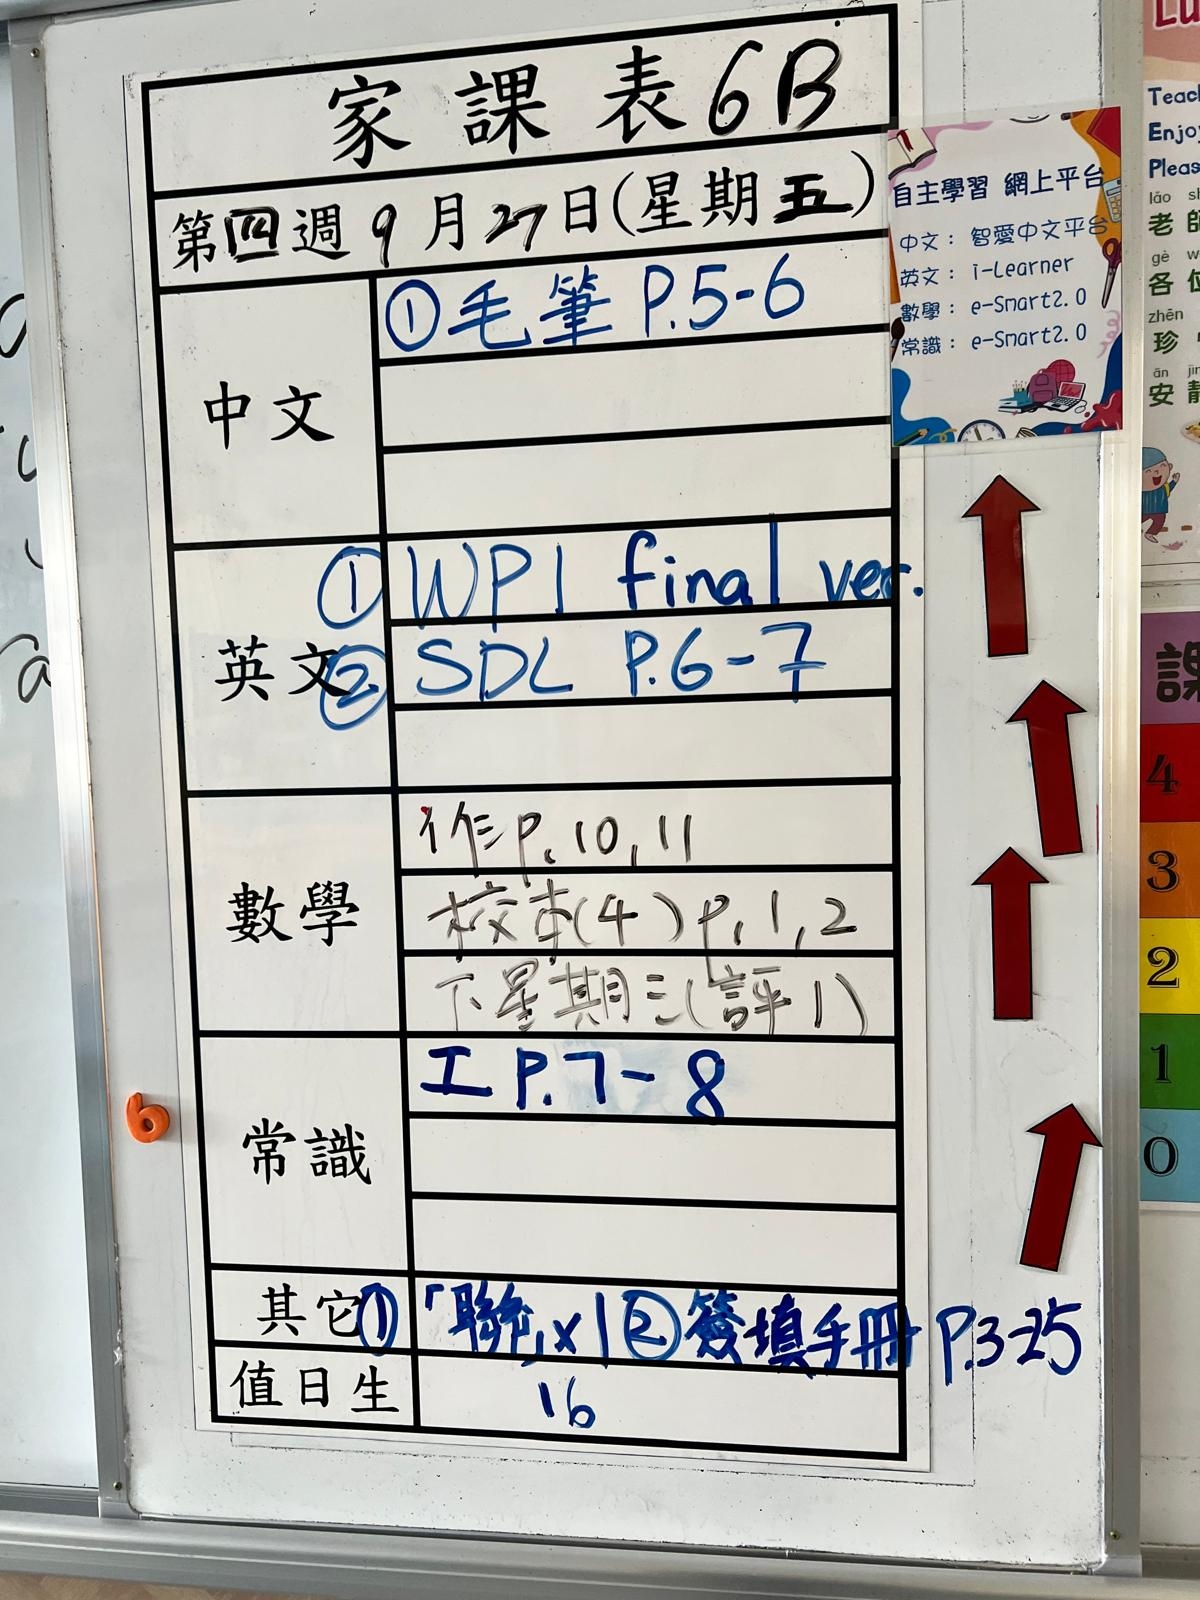 家課表6B
第四週9月27日(星期五)
中文
①毛筆 P.5-6
英文
①WP1 final ver.
②SDL P.6-7
數學
作P.10,11
校本(4)P.1,2
下星期三(評1)
常識
工 P.7-8
其它
①「聯絡」x1 ②簽填手冊 P.3-25
值日生
16
6
自主學習 網上平台
中文: 智愛中文平台
英文: i-Learner
數學: e-Smart2.0
常識: e-Smart2.0
Lu
Teac
Enjoy
Pleas
lǎo sh
老師
gè w
各位
zhēn
珍
ān jìn
安靜
課
4
3
2
1
0